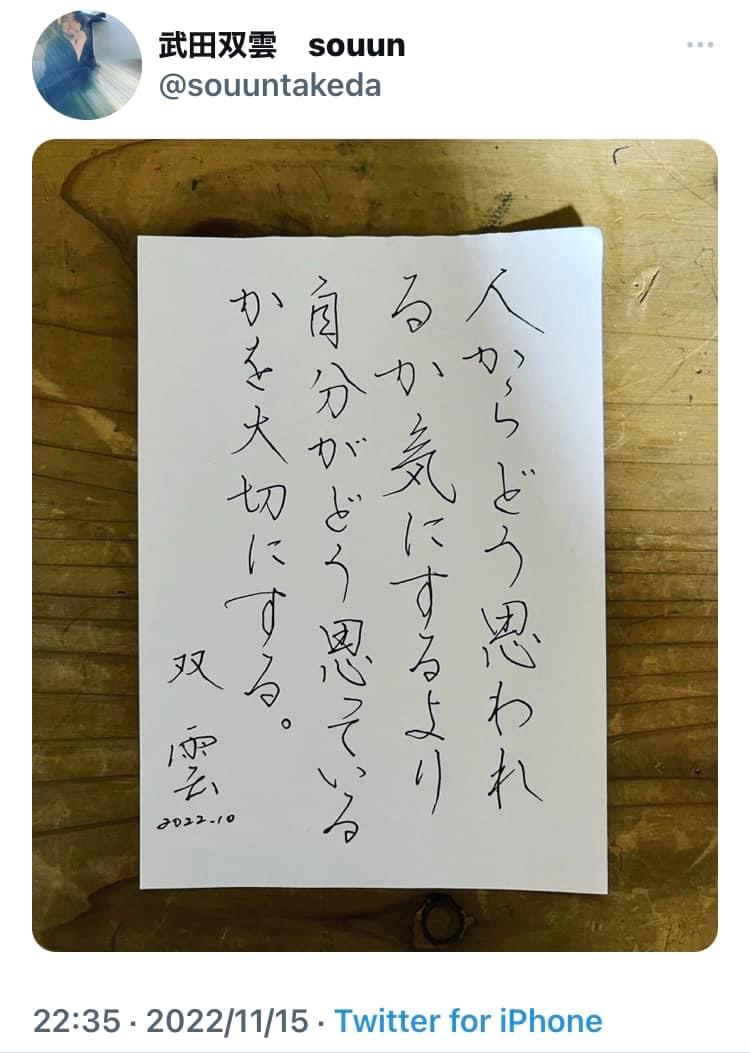 武田双雲　souun
@souuntakeda
人からどう思われ
るか気にするより
自分がどう思っている
かを大切にする。
双雲
2022.10
22:35 · 2022/11/15 · Twitter for iPhone